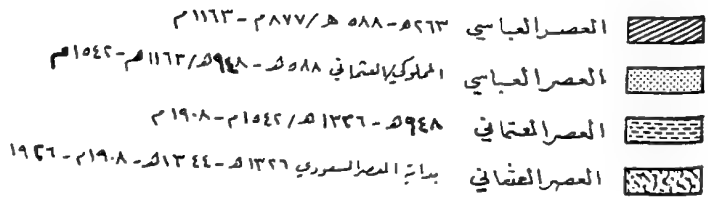 العصر العباسي ٢٦٣هـ - ٥٨٨ هـ / ٨٧٧م - ١١٦٣ م
العصر العباسي المملوكي/العثماني ٥٨٨هـ - ٩٤٨هـ/١١٦٣م - ١٥٤٢م
العصر العثماني ٩٤٨هـ - ١٣٢٦هـ/١٥٤٢م - ١٩٠٨ م
العصر العثماني بداية العصر السعودي ١٣٢٦هـ - ١٣٤٤هـ - ١٩٠٨م - ١٩٢٦